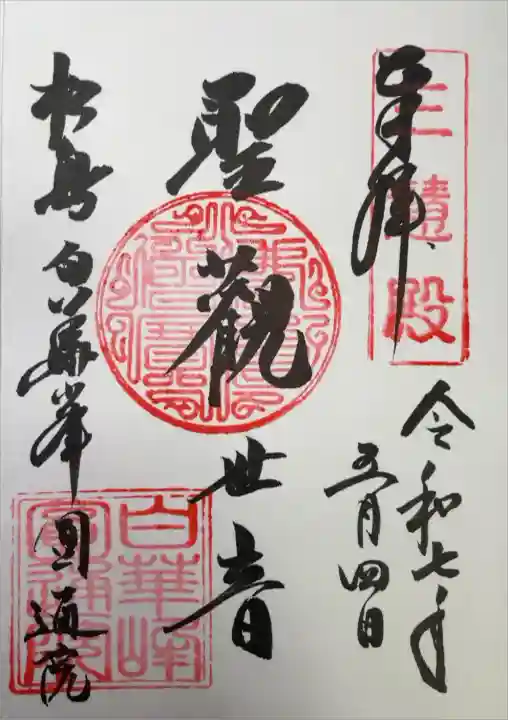 奉拝
三慧殿
令和七年
五月四日
聖觀世音
松島 白華峯 圓通院
白華峰
圓通院